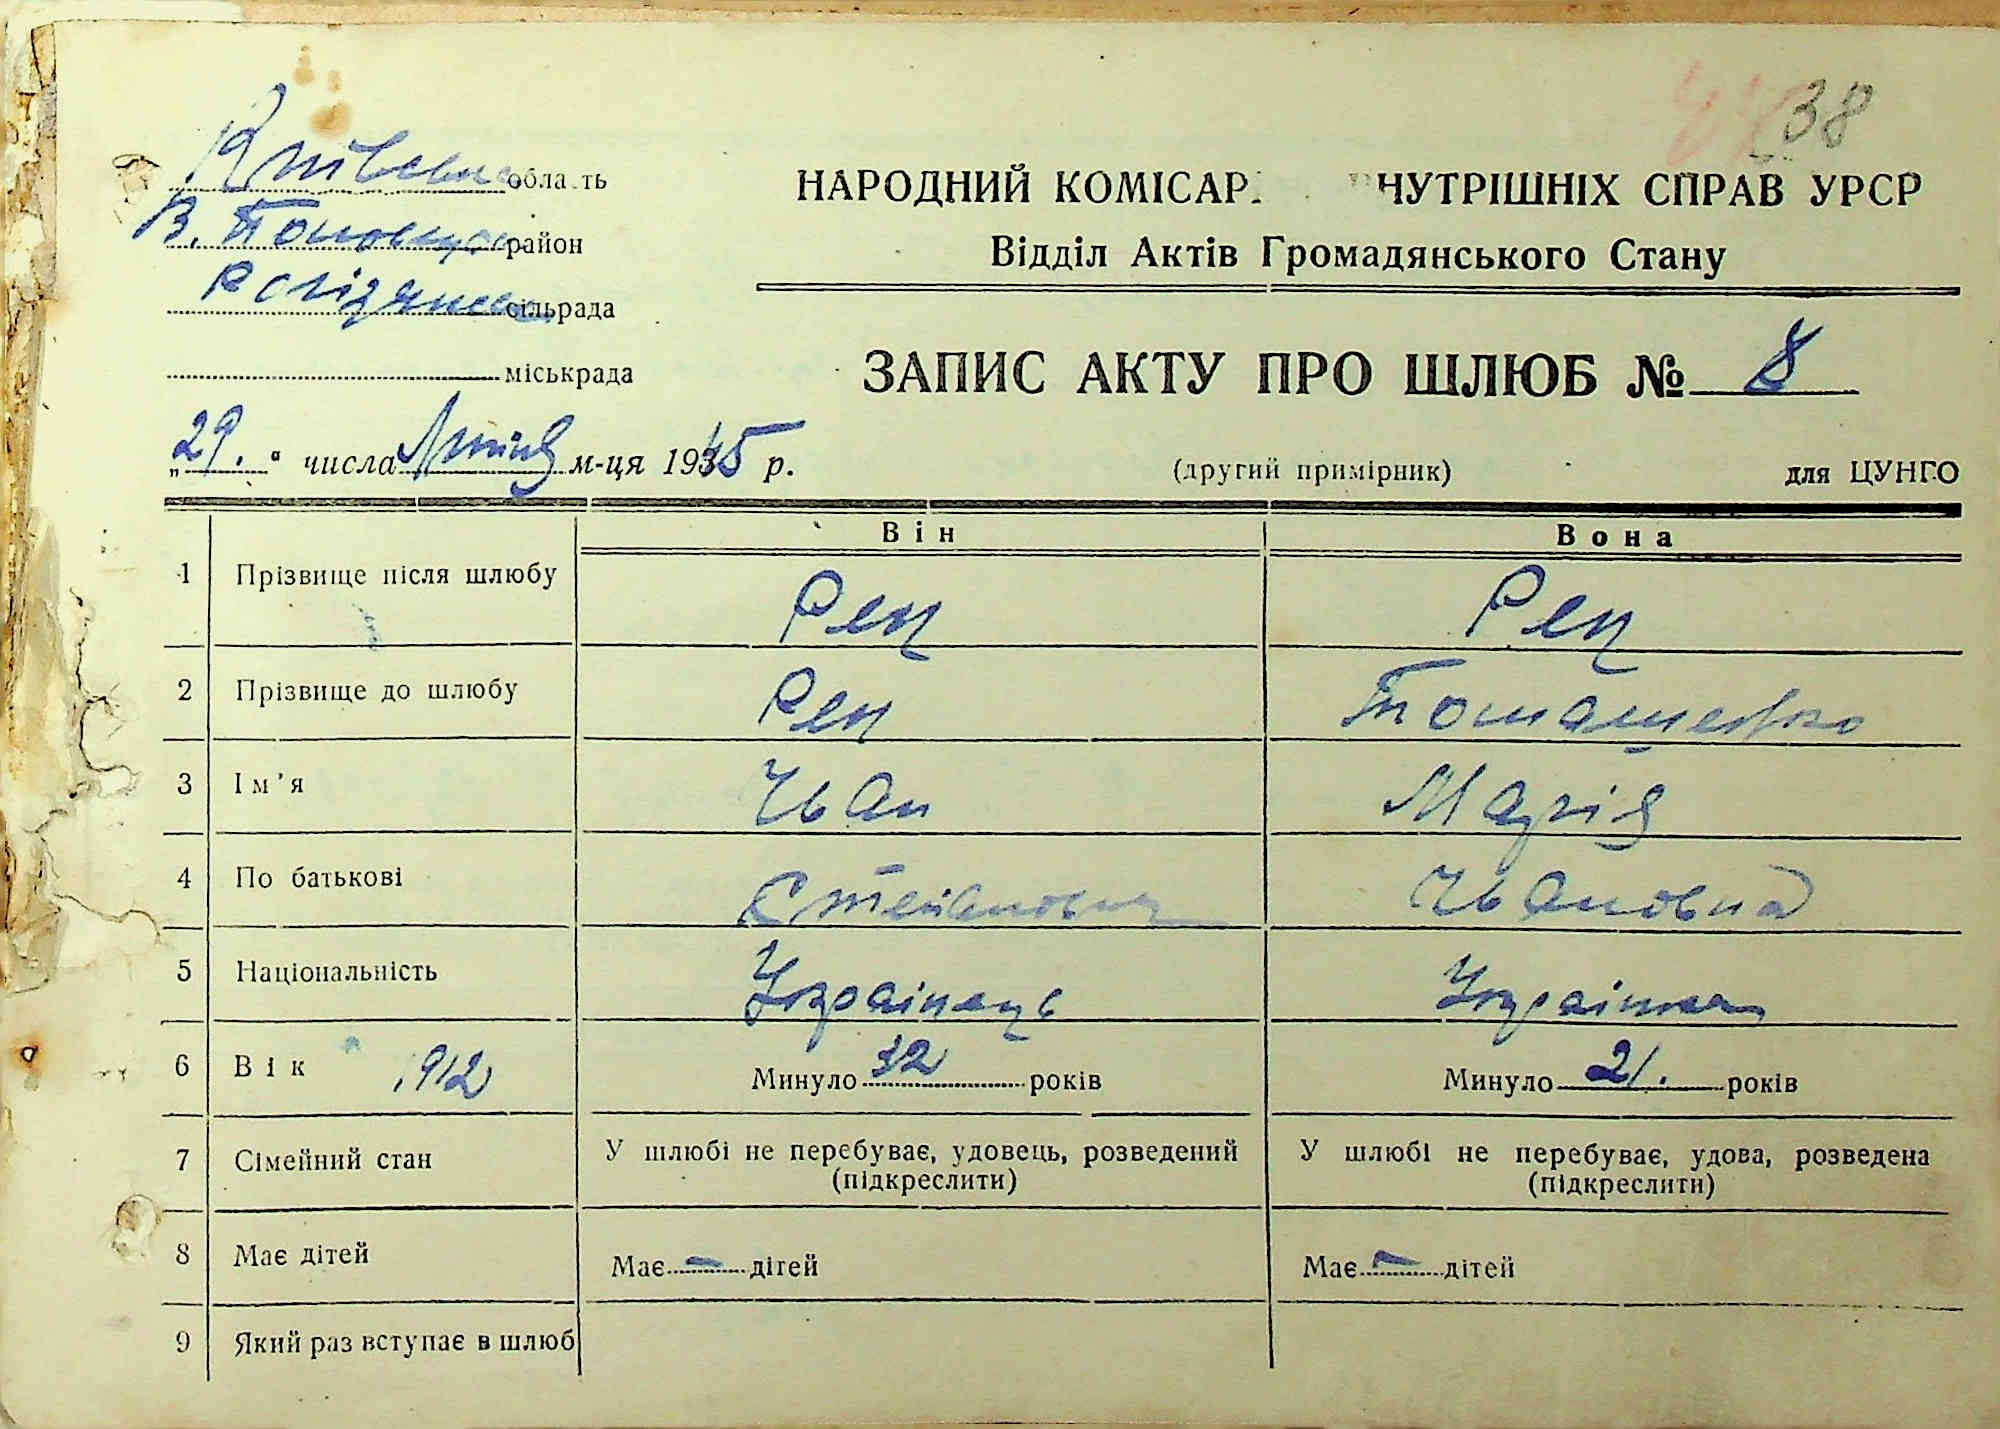 38
Київська область
В. Половецький район
сільрада
міськрада
НАРОДНИЙ КОМІСАР ВНУТРІШНІХ СПРАВ УРСР
Відділ Актів Громадянського Стану
ЗАПИС АКТУ ПРО ШЛЮБ № 8
„29." числа Липня м-ця 1945 р.
(другий примірник)
для ЦУНГО
Він
Вона
1 Прізвище після шлюбу Рец Рец
2 Прізвище до шлюбу Рец
3 Ім'я Іван Марія
4 По батькові Степанович Івановна
5 Національність Українець Українка
6 Вік 1912 Минуло 32 років Минуло 21. років
7 Сімейний стан У шлюбі не перебуває, удовець, розведений (підкреслити) У шлюбі не перебуває, удова, розведена (підкреслити)
8 Має дітей Має – дітей Має – дітей
9 Який раз вступає в шлюб